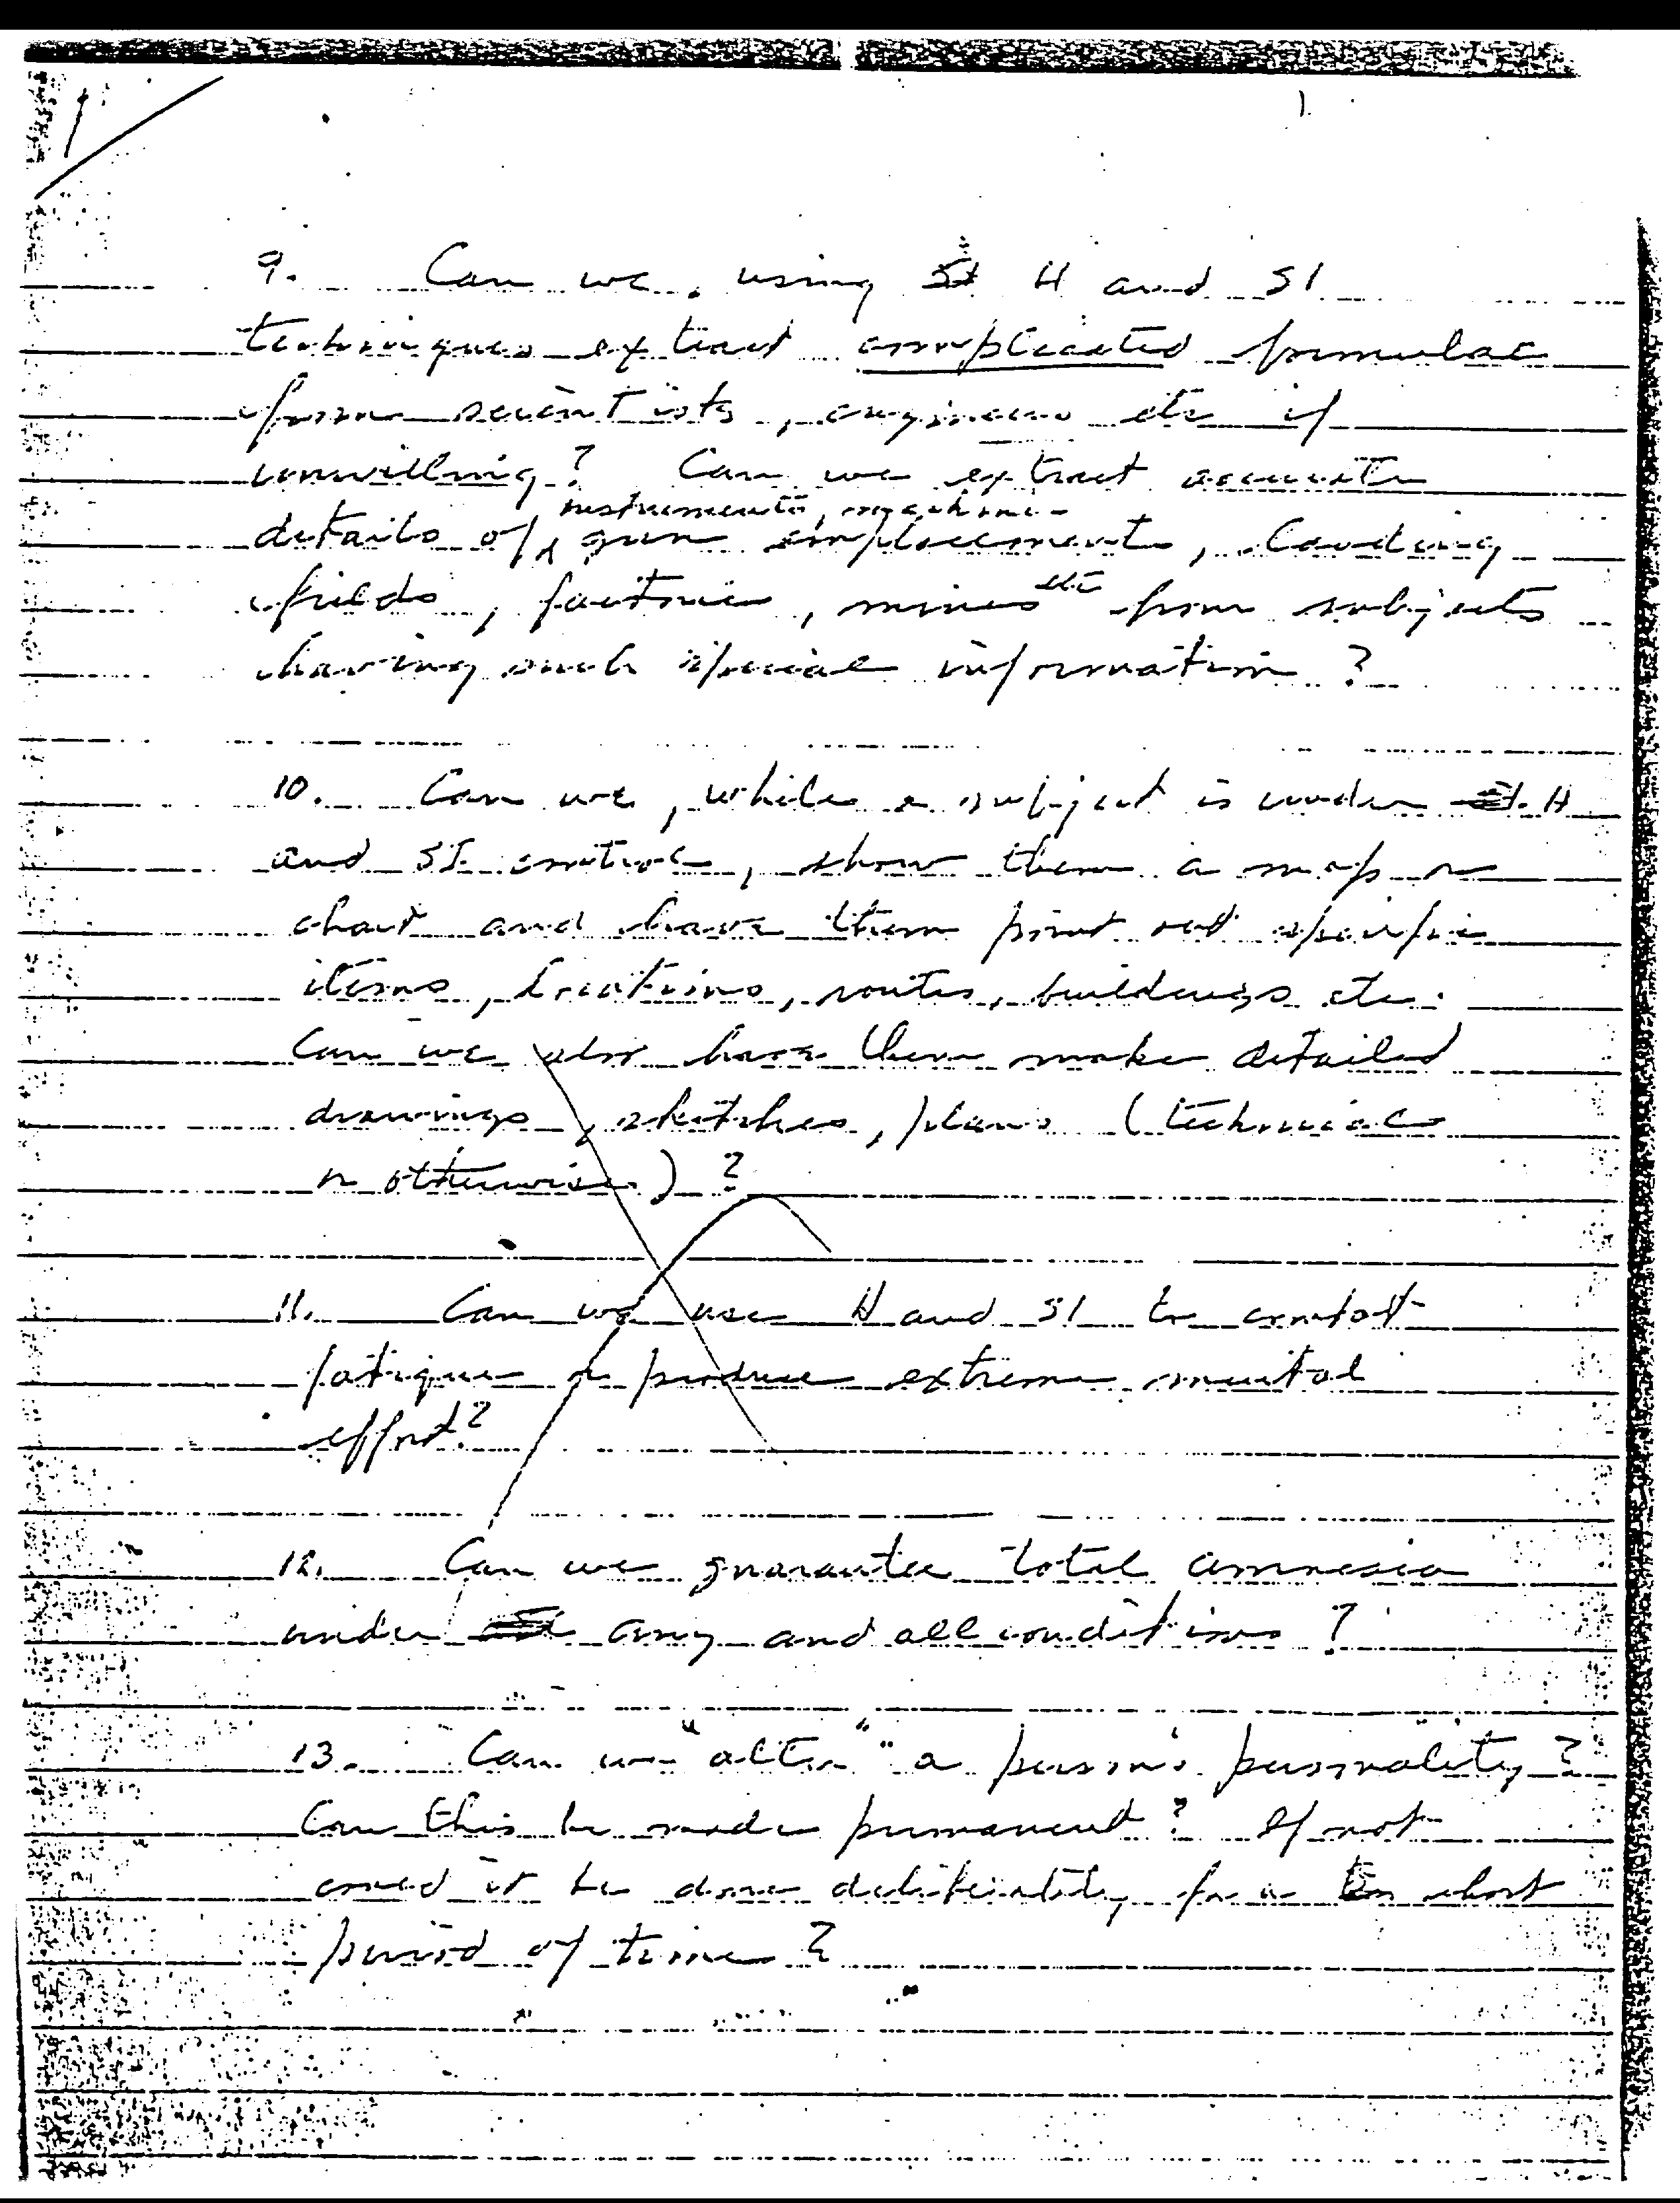 9. Can we, using H and SI
techniques extract complicated formulae
from scientists, engineers etc if
unwilling? Can we extract accurate
instruments, machine
details of gun emplacements, landing
fields, factories, mines etc from subjects
having such special information?
10. Can we, while a subject is under H
and SI control, show them a map or
chart and have them point out specific
items, locations, routes, buildings etc.
Can we also have them make detailed
drawings, sketches, plans (technical
or otherwise)?
11. Can we use H and SI to combat
fatigue or produce extreme mental
effort?
12. Can we guarantee total amnesia
under any and all conditions?
13. Can we "alter" a person's personality?
Can this be made permanent? If not
could it be done deliberately for a short
period of time?